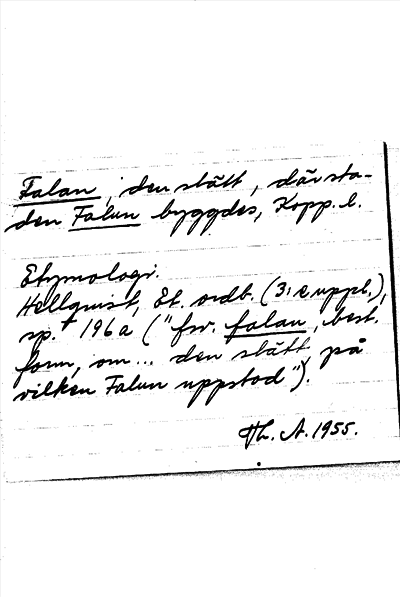 Falan, den slätt, där sta-
den Falun byggdes, Kopp. l.
Etymologi.
Hellquist, Et. ordb. (3:e uppl.),
sp. 196 a ("fsv. falan, best.
form, om... den slätt, på
vilken Falun uppstod").
Th. A. 1955.